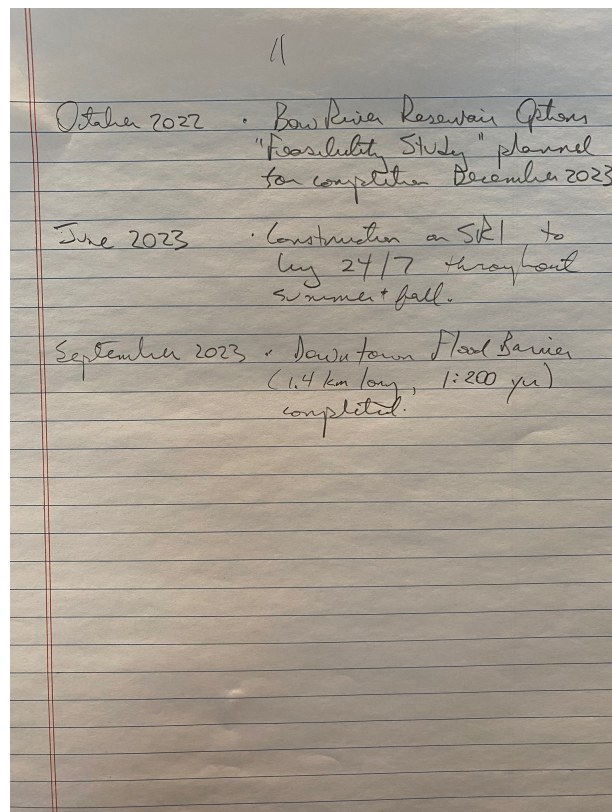 11
October 2022 · Bow River Reservoir Options
"Feasibility Study" planned
for completion December 2023
June 2023 · Construction on SR1 to
be 24/7 throughout
summer + fall.
September 2023 · Downtown Flood Barrier
(1.4 km long, 1:200 yr)
completed.